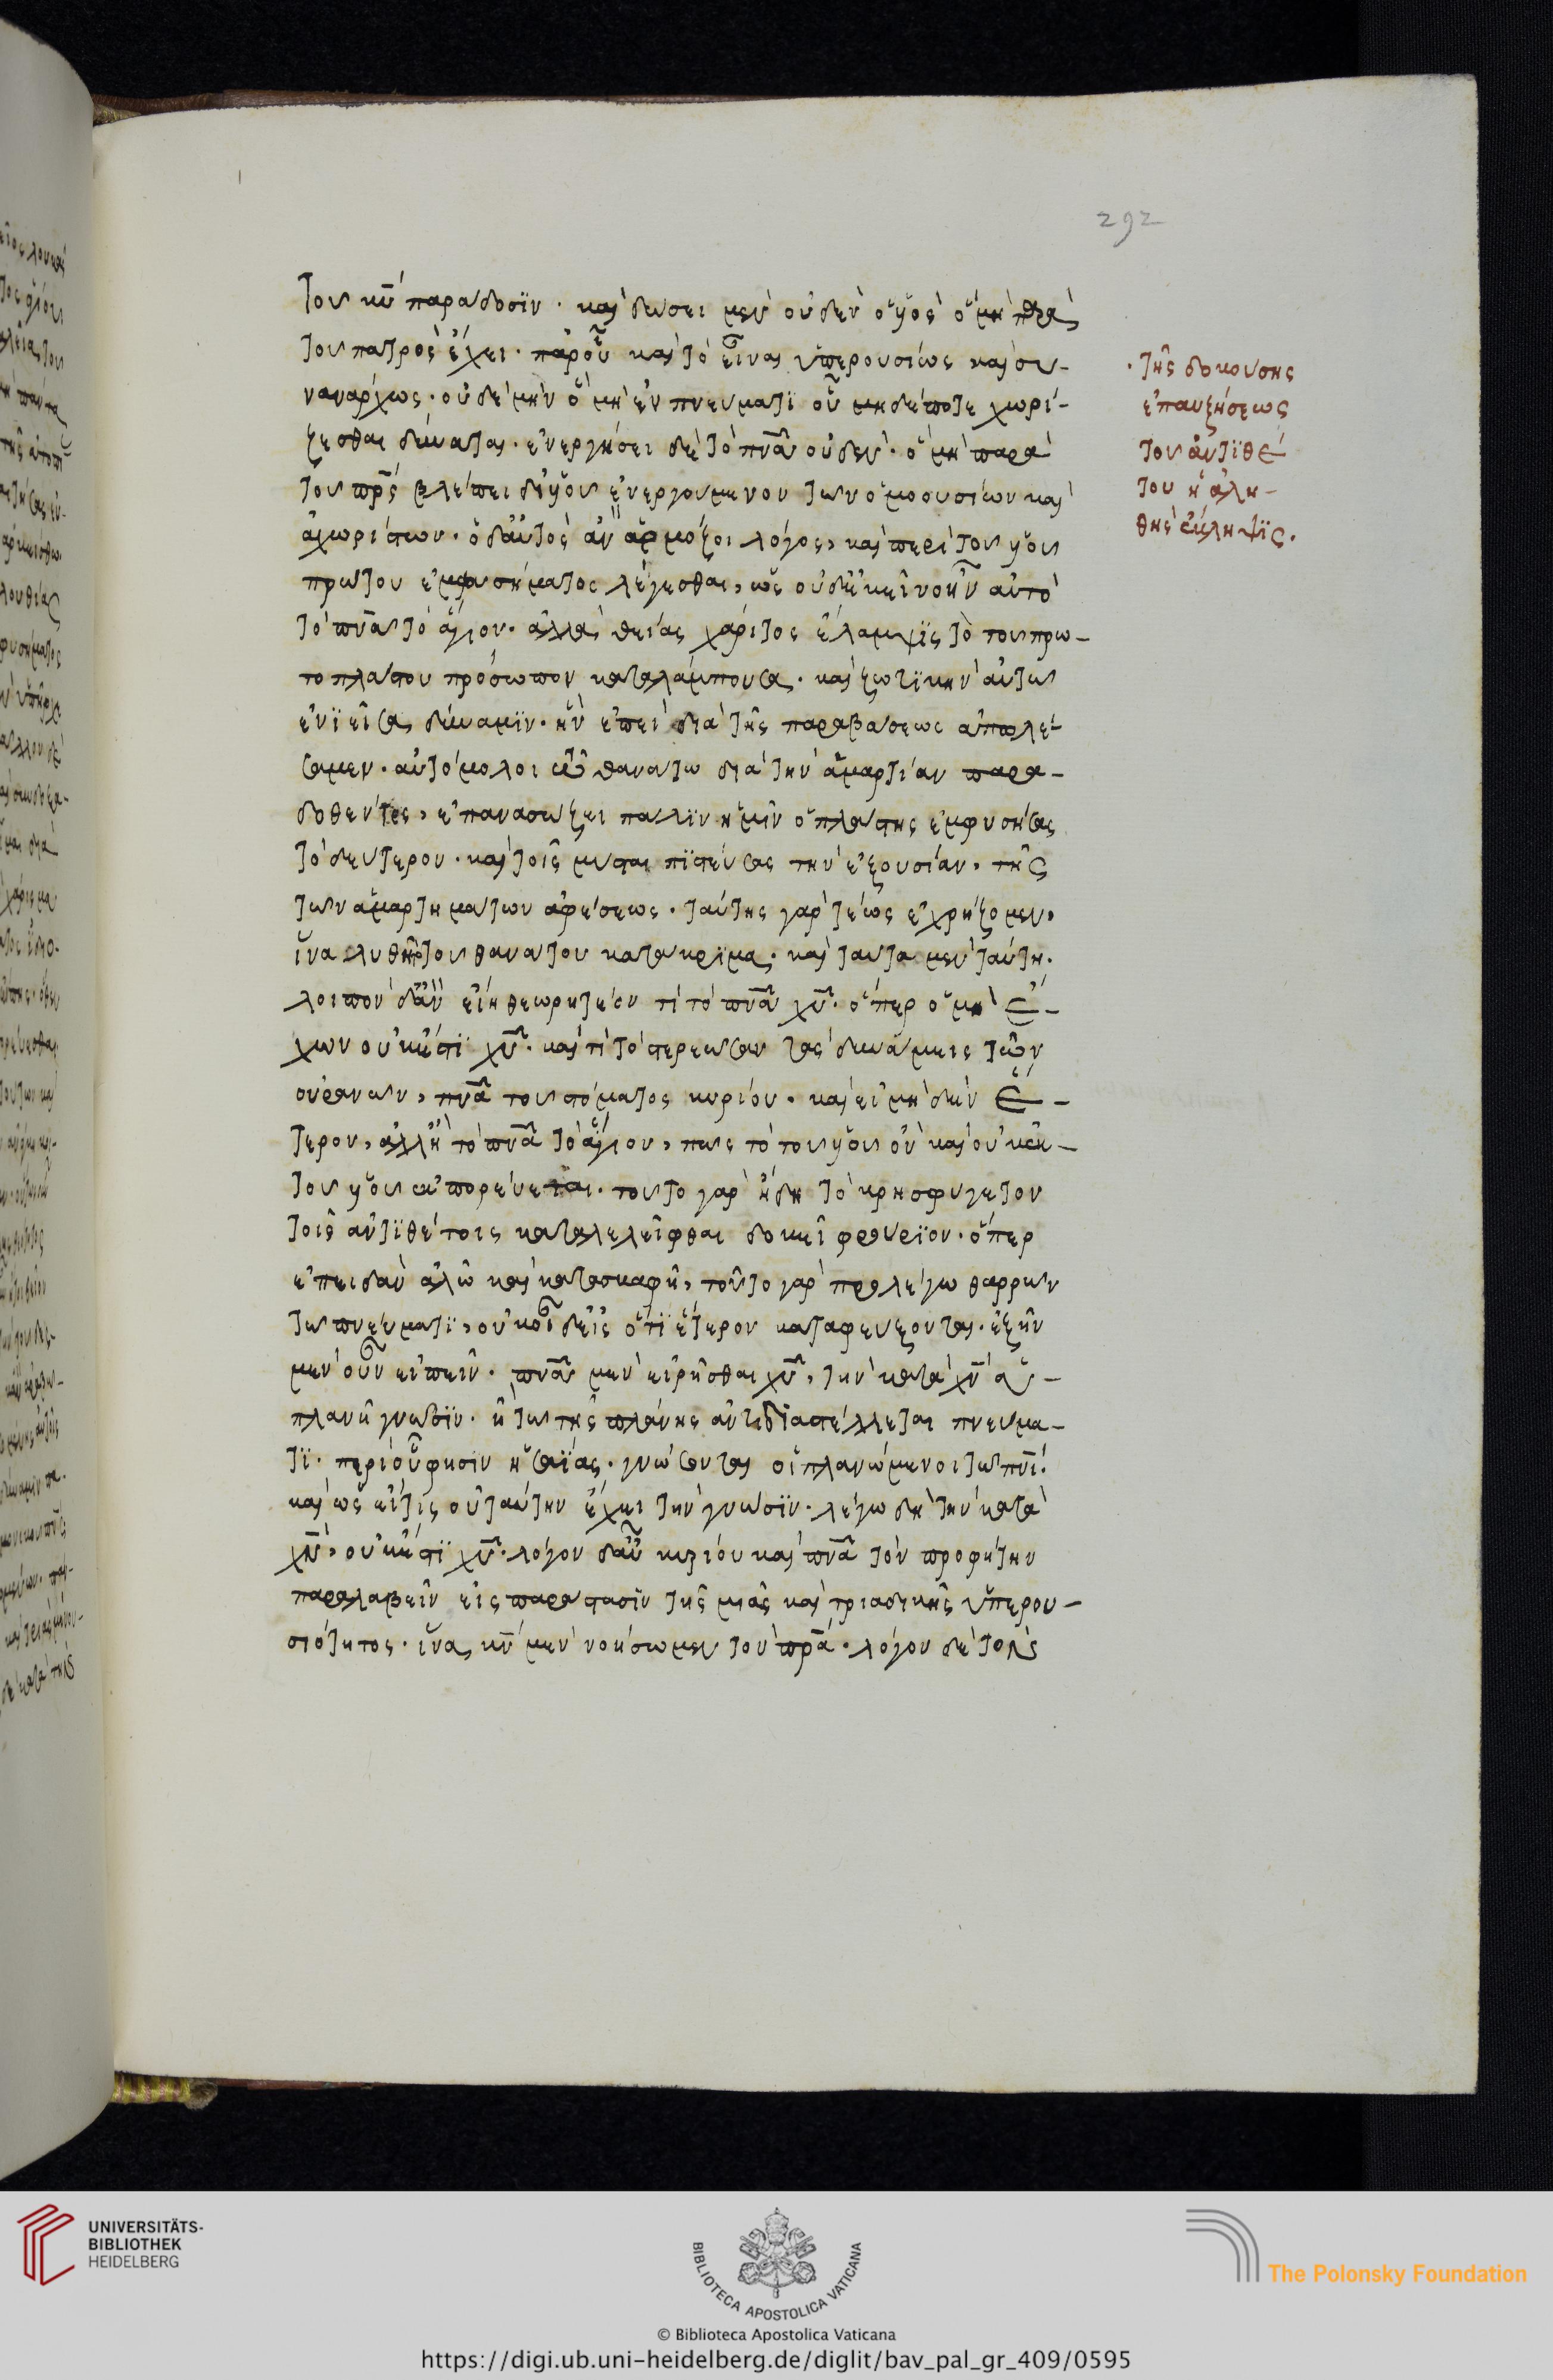 τοῦ κ̅υ̅ παράδοσιν · καὶ δώσει μὲν οὐδὲν ὁ υἱὸς ὃ μὴ παρὰ
τοῦ πατρὸς ἔχει · παροὗ καὶ τὸ εἶναι ὑπερουσίως καὶ συ-
ναναρχως · οὐδὲ μὴν ὃ μὴ ἐν πνευματϊ οὗ μηδέποτε χωρί-
ζεσθαι δύναται · ἐνεργήσει δὲ τὸ π̅ν̅α̅ οὐδὲν · ὃ μὴ παρὰ
τοῦ π̅ρ̅ς̅ βλέπει διυἱοῦ ἐνεργουμενον τῶν ὁμοουσίων καὶ
ἀχωρίστων · ὁ δαὐτὸς ἂν ἁρμόζοι λόγος, καὶ περὶ τοῦ
πρώτου ἐμφυσήματος λέγεσθαι, ὡς οὐδἐκεῖνο ἦν αὐτὸ
τὸ π̅ν̅α̅ τὸ ἅγιον · ἀλλὰ θείας χάριτος ἔλαμψϊς τὸ τοῦ πρω-
τοπλάστου πρόσωπον καταλάμπουσα · καὶ ζωτϊκὴν αὐτῶ
ἐνϊεῖσα δύναμϊν · ἣν ἐπεὶ διὰ τῆς παραβάσεως ἀπωλέ-
σαμεν · αὐτόμολοι τῶ θανάτω διὰ τὴν ἁμαρτίαν παρα-
δοθέντες, ἐπανασώζει παλϊν ἡμῖν ὁ πλάστης ἐμφυσήσας
τὸ δεύτερον · καὶ τοῖς μύσταις πϊστεύσας τὴν ἐξουσίαν, τῆς
τῶν ἁμαρτημάτων ἀφέσεως · ταύτης γὰρ τέως ἐχρήζομεν,
ἵνα λυθῆ τὸ τοῦ θανάτου κατακρϊμα · καὶ ταῦτα μὲν ταύτη ·
λοιπὸν δἂν εἴη θεωρητέον τί τὸ π̅ν̅α̅ χ̅υ̅ · ὅπερ ὁ μὴ ἔ-
χων οὐκέστϊ χ̅υ̅ · καὶ τί τὸ στερεῶσαν τὰς δυνάμεις τῶν
οὐρανῶν, π̅ν̅α̅ τοῦ στόματος κυρίου · καὶ εἰ μηδὲν ἕ-
τερον, ἀλλἢ τὸ π̅ν̅α̅ τὸ ἅγιον, πῶς τὸ τοῦ υἱοῦ ὂν καὶ οὐκἐκ
τοῦ υἱοῦ ἐκπορεύεται · τοῦτο γὰρ ἤδη τὸ κρησφύγετον
τοῖς ἀντϊθέτοις καταλελεῖφθαι δοκεῖ φρούρϊον · ὅπερ
ἐπειδὰν ἁλῶ καὶ κατασκαφῆ, τοῦτο γὰρ προλέγω θαρρῶν
τῶ πνεύματϊ, οὐκοἶδεἰς ὅτϊ ἕτερον καταφεύξονται · ἐξῆν
μὲν οὖν εἰπεῖν · π̅ν̅α̅ μὲν εἰρῆσθαι χ̅υ̅, τὴν κατὰ χ̅ν̅ ἀ-
πλανῆ γνῶσϊν · ἣ τῶ τῆς πλάνης ἀντιδϊαστέλλεται πνεύμα-
τϊ · περὶοὗφησϊν ἡσαΐας · γνώσονται οἱ πλανώμενοι τῶ π̅ν̅ι̅
καὶ ὡς εἴτϊς οὐ ταύτην ἔχει τὴν γνῶσϊν · λέγω δὴ τὴν κατὰ
χ̅ν̅, οὐκἔστϊ χ̅υ̅ · λόγον δαὖ κυρίου καὶ π̅ν̅α̅ τὸν προφήτην
παραλαβεῖν εἰς παράστασϊν τῆς μιᾶς καὶ τριαδικῆς ὑπερου-
σιότητος · ἵνα κ̅ν̅ μὲν νοήσωμεν τὸν π̅ρ̅α̅ · λόγον δὲ τοῦ
· τῆς δοκούσης
ἐπαυξήσεως
τοῦ ἀντϊθέ
του ἡ ἀλη-
θὴς ἔκληψϊς.
292
UNIVERSITÄTS-
BIBLIOTHEK
HEIDELBERG
BIBLIOTECA APOSTOLICA VATICANA
The Polonsky Foundation
© Biblioteca Apostolica Vaticana
https://digi.ub.uni-heidelberg.de/diglit/bav_pal_gr_409/0595